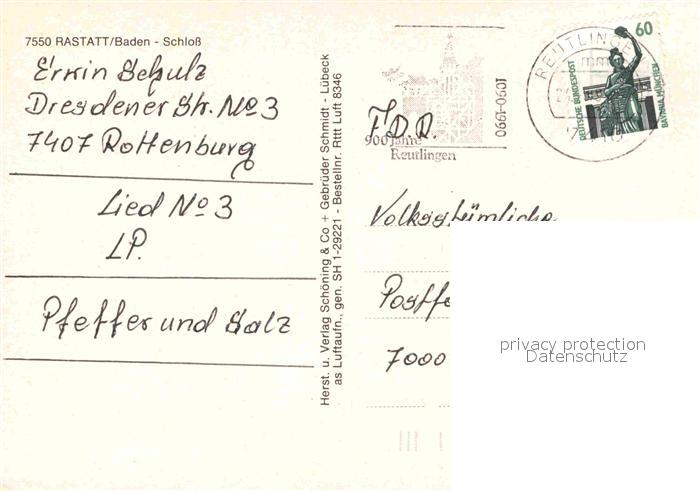 7550 RASTATT/Baden - Schloß
Erwin Schulz
Dresdener Str. No 3
7407 Rottenburg
Lied No 3
LP.
Pfeffer und Salz
Herst. u. Verlag Schöning & Co + Gebrüder Schmidt - Lübeck
as Luftaufn., gen. SH 1-29221 - Bestellnr. Rttt Luft 8346
900 Jahre
Reutlingen
1090-1990
REUTLINGEN
60
DEUTSCHE BUNDESPOST
BAVARIA MÜNCHEN
F.D.R.
Volkstümliche
Postf
7000
privacy protection
Datenschutz